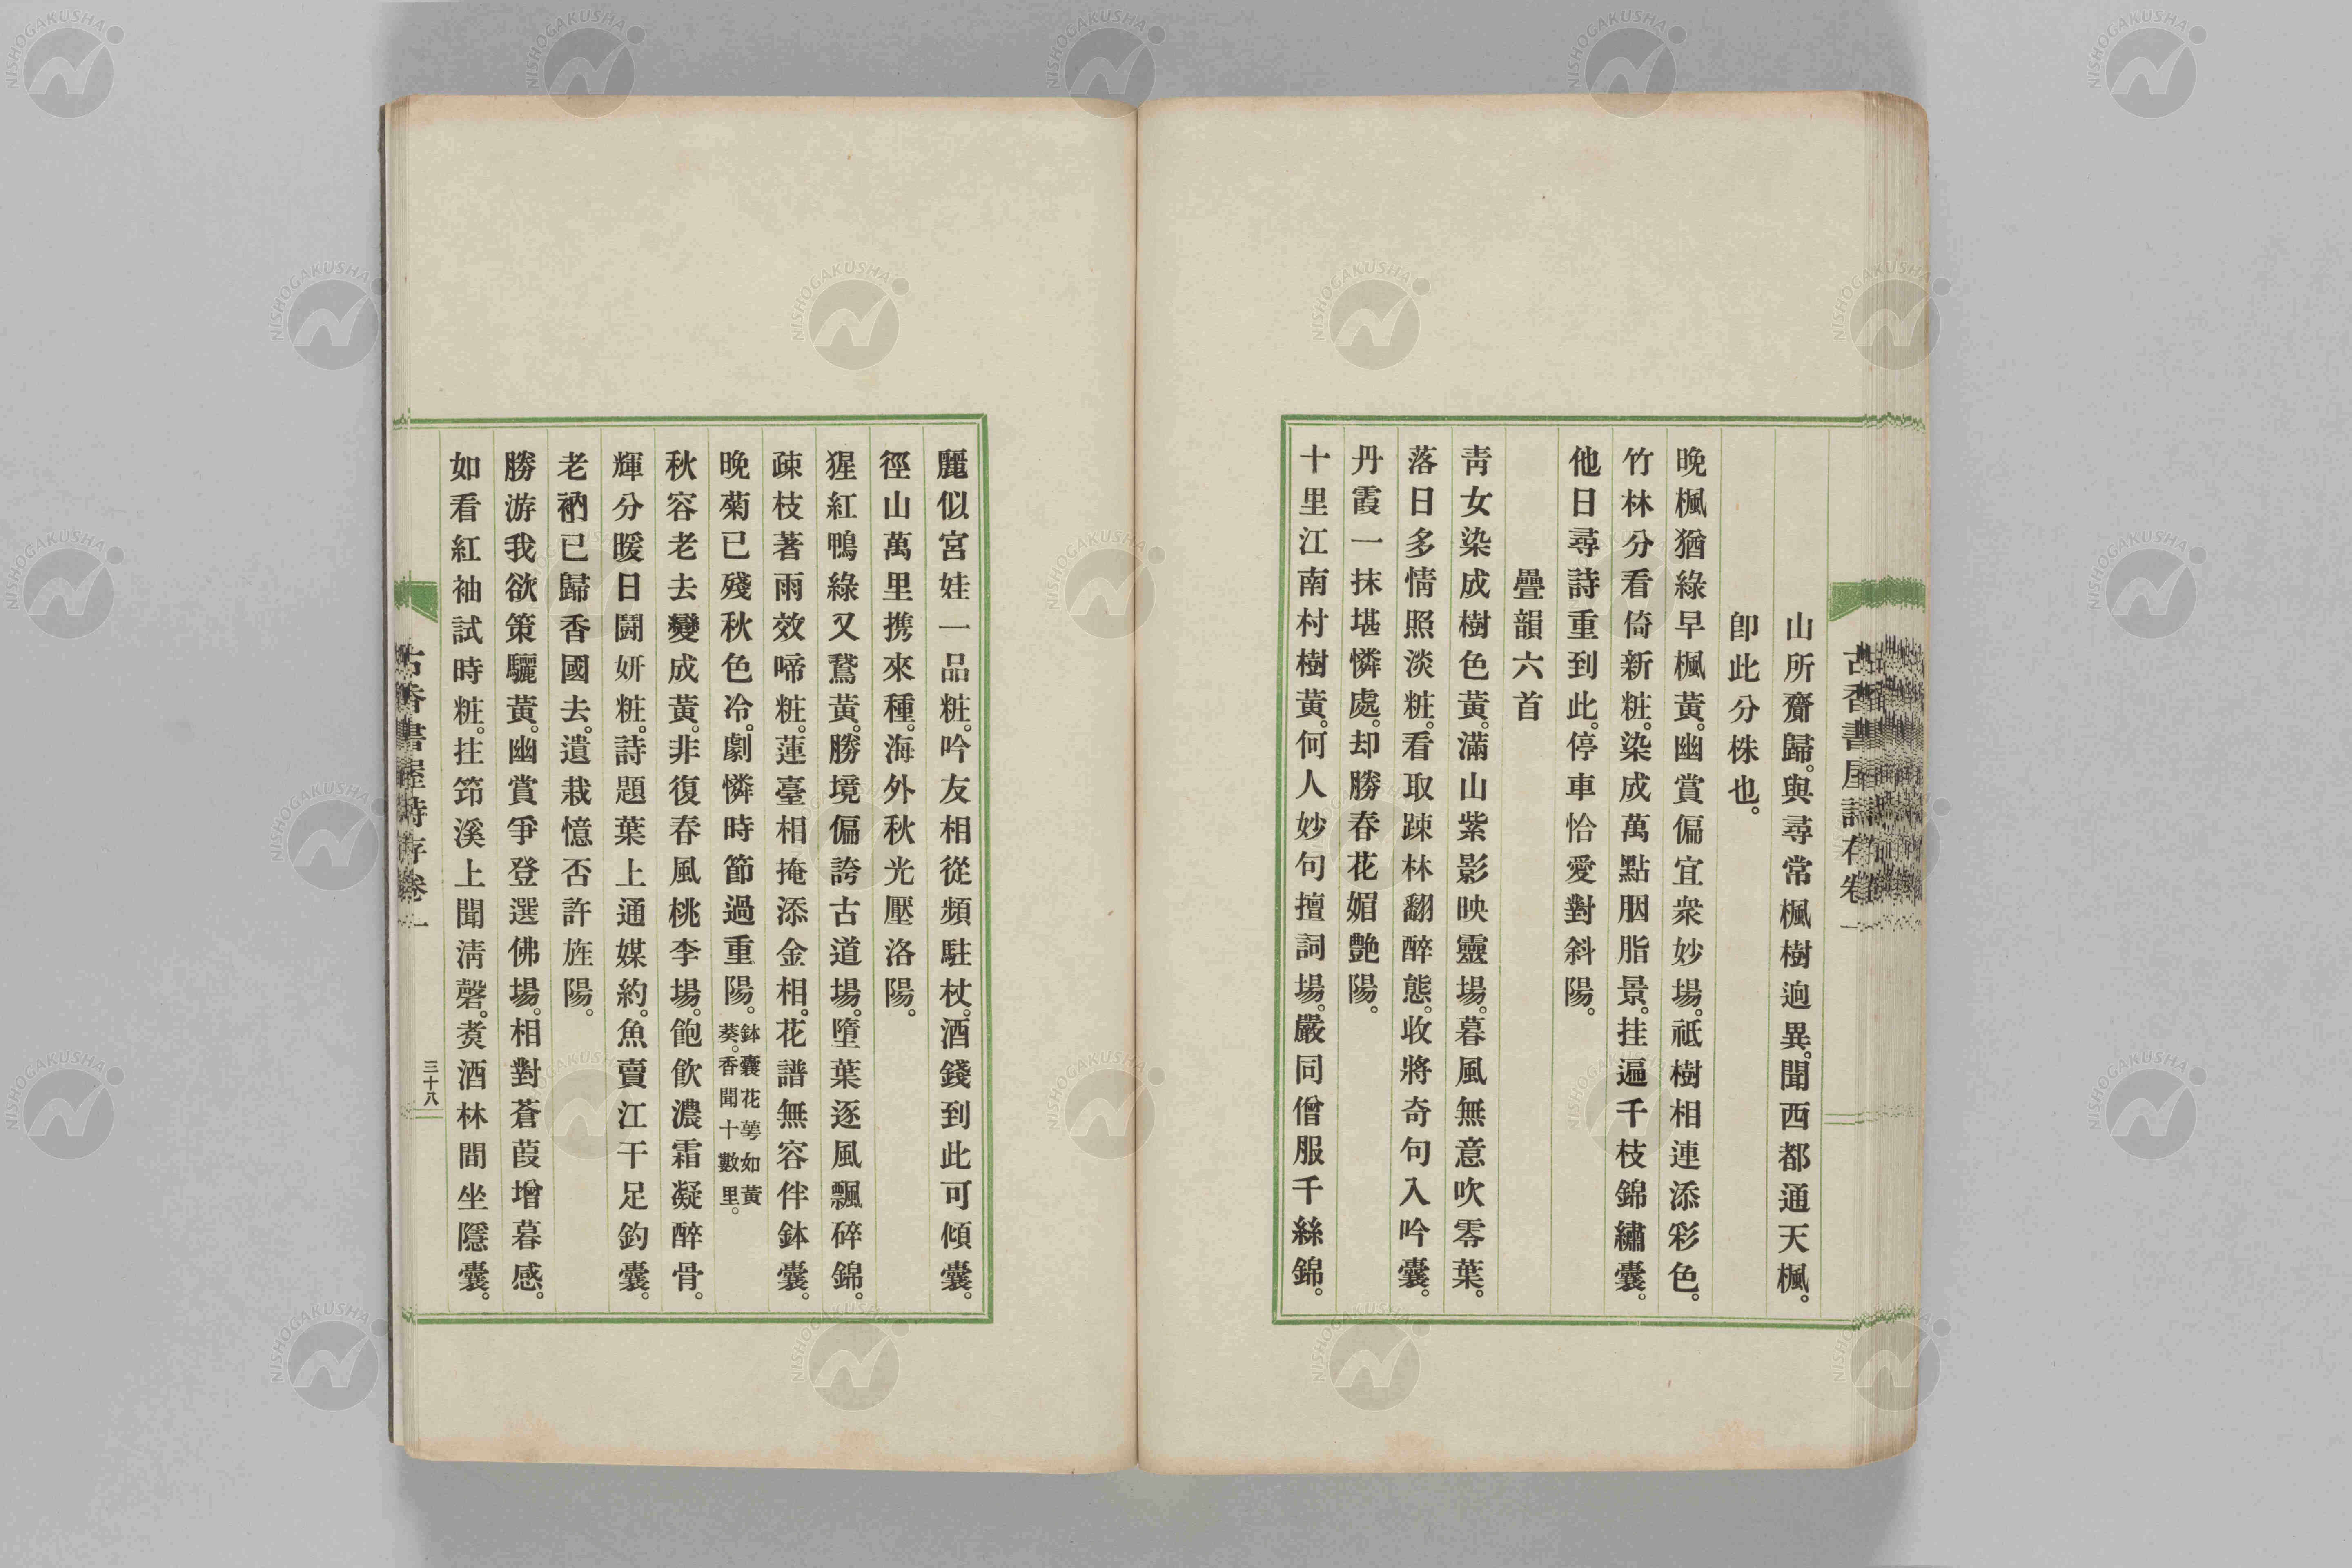 古香書屋詩存卷一
山所齎歸。與尋常楓樹逈異。聞西都通天楓。
卽此分株也。
晚楓猶綠早楓黃。幽賞偏宜衆妙場。祗樹相連添彩色。
竹林分看倚新粧。染成萬點胭脂景。挂遍千枝錦繡囊。
他日尋詩重到此。停車恰愛對斜陽。
疊韻六首
靑女染成樹色黃。滿山紫影映靈場。暮風無意吹零葉。
落日多情照淡粧。看取踈林翻醉態。收將奇句入吟囊。
丹霞一抹堪憐處。却勝春花媚艷陽。
十里江南村樹黃。何人妙句擅詞場。嚴同僧服千絲錦。
麗似宮娃一品粧。吟友相從頻駐杖。酒錢到此可傾囊。
徑山萬里携來種。海外秋光壓洛陽。
猩紅鴨綠又鵞黃。勝境偏誇古道場。墮葉逐風飄碎錦。
疎枝著雨效啼粧。蓮臺相掩添金相。花譜無容伴鉢囊。
晚菊已殘秋色冷。劇憐時節過重陽。鉢囊花蕚如黃
葵。香聞十數里。
秋容老去變成黃。非復春風桃李場。飽飮濃霜凝醉骨。
輝分暖日鬪姸粧。詩題葉上通媒約。魚賣江干足釣囊。
老衲已歸香國去。遺栽憶否許旌陽。
勝游我欲策驪黃。幽賞爭登選佛場。相對蒼葭增暮感。
如看紅袖試時粧。拄筇溪上聞淸磬。煑酒林間坐隱囊。
古香書屋詩存卷一
三十八
NISHOGAKUSHA